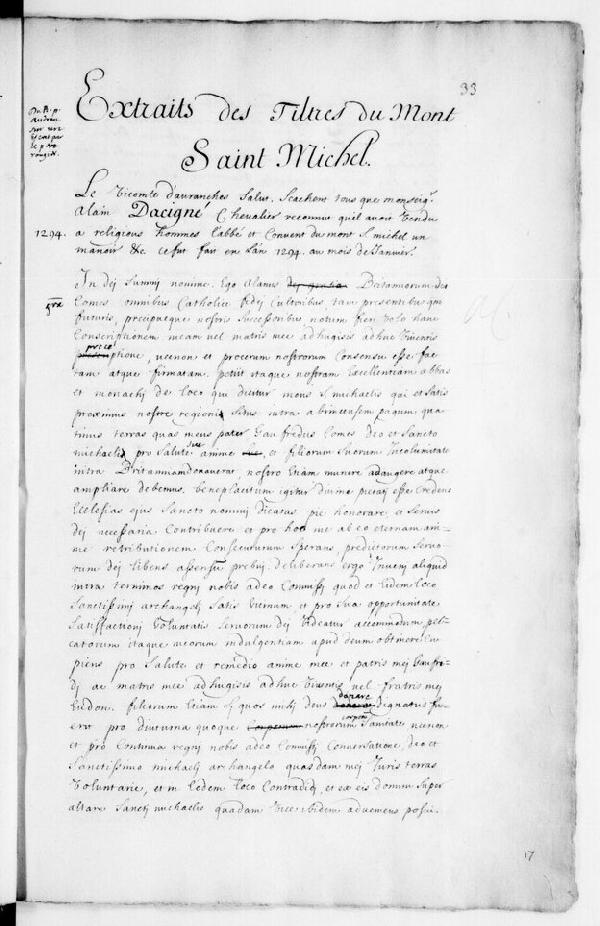 33
Extraits des Tiltres du Mont
Saint Michel.
Du R. p.
Le Vicomte d'avranches Salut. Scachent tous que monseigr.
Alain Dacigné Chevalier reconnut qu'il avoit Vendu
1294.
a religious hommes l'abbé et Convent du mont S. michel un
manoir &c. ce fut fait en L'an 1294. au mois de Janvier.
In dej Summj nomine. Ego Alanus dej gratia Britannorum dei
grã
Comes omnibus Catholice fidej Cultoribus tam presentibus quã
futuris, precipueque nostris Successoribus notum fieri Volo hanc
Conscriptionem meam vel matris mee adhugisis adhuc Viventis
ptione, necnon et procerum nostrorum Consensu esse fac
tam atque firmatam. petiit itaque nostram Excellentiam abbas
et monachj de loco qui dicitur mons S. michaelis qui est satis
proximus nostre regionis Situs intra abrincatensem pagum qua
tinus terras quas meus pater Gaufredus Comes deo et Sancto
sue
michaelj pro Salute anime sue, et filiorum Suorum Incolumitate
intra Britanniam donaverat, nostro Etiam munere adaugere atque
ampliare debemus. beneplacitum igitur divine pietatj esse Credens
Ecclesias ejus Sancto nominj dicatas pie honorare et Servis
dej necessaria Contribuere et pro hoc me ab eo eternam am=
me retributionem Consecuturum Sperans, predictorum Servo
rum dej libens assensum prebuj. deliberans ergo Invenj aliquid
intra terminos regnj nobis adeo Commissj quod et Eidem loco
Sanctissimj archangelj Satis Vicinum, et pro Sua opportunitate
Satisfactionj Voluntatis Servorum dej Videatur accommodum pec=
catorum itaque meorum indulgentiam apud deum obtinere Cu
piens pro Salute et remedio anime mee et patris mej Gaufre
dj ac matris mee adhugisis adhuc Viventis vel fratris mej
donare
Eudon. filiorum Etiam quos mihj deus donare dignatus fu
corporis
erit pro diuturna quoque Corporum nostrorum Sanitate necnon
et pro Continua regnj nobis adeo Commissj Conservatione, deo et
Sanctissimo michaelj archangelo quasdam mej Juris terras
Voluntarie, et in Eodem loco Contradidj, et ex eis donum Super
altare Sanctj michaelis quadam Vice ibidem adveniens posui.
17